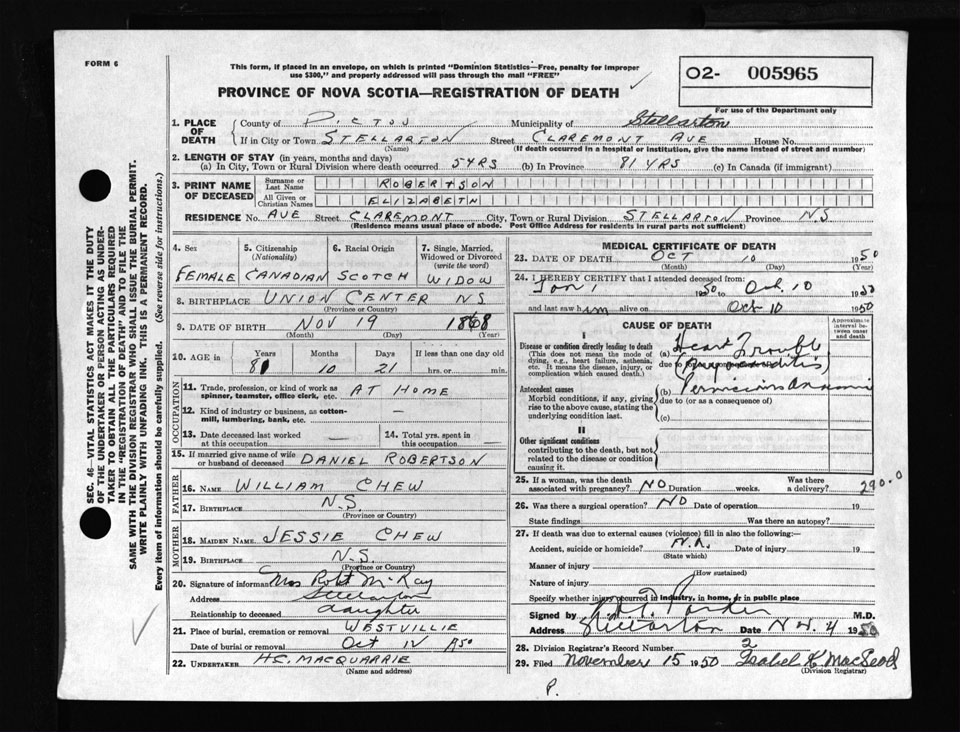 FORM 6
This form, if placed in an envelope, on which is printed "Dominion Statistics—Free, penalty for improper
use $300," and properly addressed will pass through the mail "FREE"
PROVINCE OF NOVA SCOTIA—REGISTRATION OF DEATH
02- 005965
For use of the Department only
1. PLACE OF DEATH County of PICTOU Municipality of Stellarton
If in City or Town STELLARTON Street CLAREMONT AVE House No.
(Name) (If death occurred in a hospital or institution, give the name instead of street and number)
2. LENGTH OF STAY (in years, months and days)
(a) In City, Town or Rural Division where death occurred 5 YRS (b) In Province 81 YRS (c) In Canada (if immigrant)
3. PRINT NAME OF DECEASED Surname or Last Name ROBERTSON
All Given or Christian Names ELIZABETH
RESIDENCE No. AVE Street CLAREMONT City, Town or Rural Division STELLARTON Province N.S
(Residence means usual place of abode. Post Office Address for residents in rural parts not sufficient)
4. Sex 5. Citizenship (Nationality) 6. Racial Origin 7. Single, Married, Widowed or Divorced (write the word)
FEMALE CANADIAN SCOTCH WIDOW
8. BIRTHPLACE UNION CENTER NS
(Province or Country)
9. DATE OF BIRTH NOV 19 1868
(Month) (Day) (Year)
10. AGE in Years Months Days If less than one day old
81 10 21 hrs. or min.
OCCUPATION
11. Trade, profession, or kind of work as spinner, teamster, office clerk, etc. AT HOME
12. Kind of industry or business, as cotton-mill, lumbering, bank, etc. —
13. Date deceased last worked at this occupation — 14. Total yrs. spent in this occupation —
15. If married give name of wife or husband of deceased DANIEL ROBERTSON
FATHER
16. NAME WILLIAM CHEW
17. BIRTHPLACE N.S.
(Province or Country)
MOTHER
18. MAIDEN NAME JESSIE CHEW
19. BIRTHPLACE N.S.
(Province or Country)
20. Signature of informant Mrs Robt McKay
Address Stellarton
Relationship to deceased daughter
21. Place of burial, cremation or removal WESTVILLIE
Date of burial or removal Oct
22. UNDERTAKER H.C. MACQUARRIE
(Name and address)
MEDICAL CERTIFICATE OF DEATH
23. DATE OF DEATH OCT 10 1950
(Month) (Day) (Year)
24. I HEREBY CERTIFY that I attended deceased from:
Jan 1 1950 to Oct. 10 1950
and last saw him alive on Oct 10 1950
CAUSE OF DEATH
Approximate interval between onset and death
I
Disease or condition directly leading to death
(This does not mean the mode of dying, e.g., heart failure, asthenia, etc. It means the disease, injury, or complication which caused death.)
(a) Heart Trouble
due to
Antecedent causes
Morbid conditions, if any, giving rise to the above cause, stating the underlying condition last.
(b) Pernicious Anaemia
due to (or as a consequence of)
(c)
II
Other significant conditions
contributing to the death, but not related to the disease or condition causing it.
25. If a woman, was the death associated with pregnancy? NO Duration weeks. Was there a delivery? 290.0
26. Was there a surgical operation? NO Date of operation 19
State findings Was there an autopsy?
27. If death was due to external causes (violence) fill in also the following:—
Accident, suicide or homicide? N.A. Date of injury 19
(State which)
Manner of injury
(How sustained)
Nature of injury
Specify whether injury occurred in industry, in home, or in public place
Signed by M.D.
Address Stellarton Date 4 1950
28. Division Registrar's Record Number 2
29. Filed November 15 1950 Isabel K. MacLeod
(Division Registrar)
P.
SEC. 46—VITAL STATISTICS ACT MAKES IT THE DUTY
OF THE UNDERTAKER OR PERSON ACTING AS UNDER-
TAKER TO OBTAIN ALL THE PARTICULARS REQUIRED
IN THE "REGISTRATION OF DEATH" AND TO FILE THE
SAME WITH THE DIVISION REGISTRAR WHO SHALL ISSUE THE BURIAL PERMIT.
WRITE PLAINLY WITH UNFADING INK. THIS IS A PERMANENT RECORD.
Every item of information should be carefully supplied. (See reverse side for instructions.)